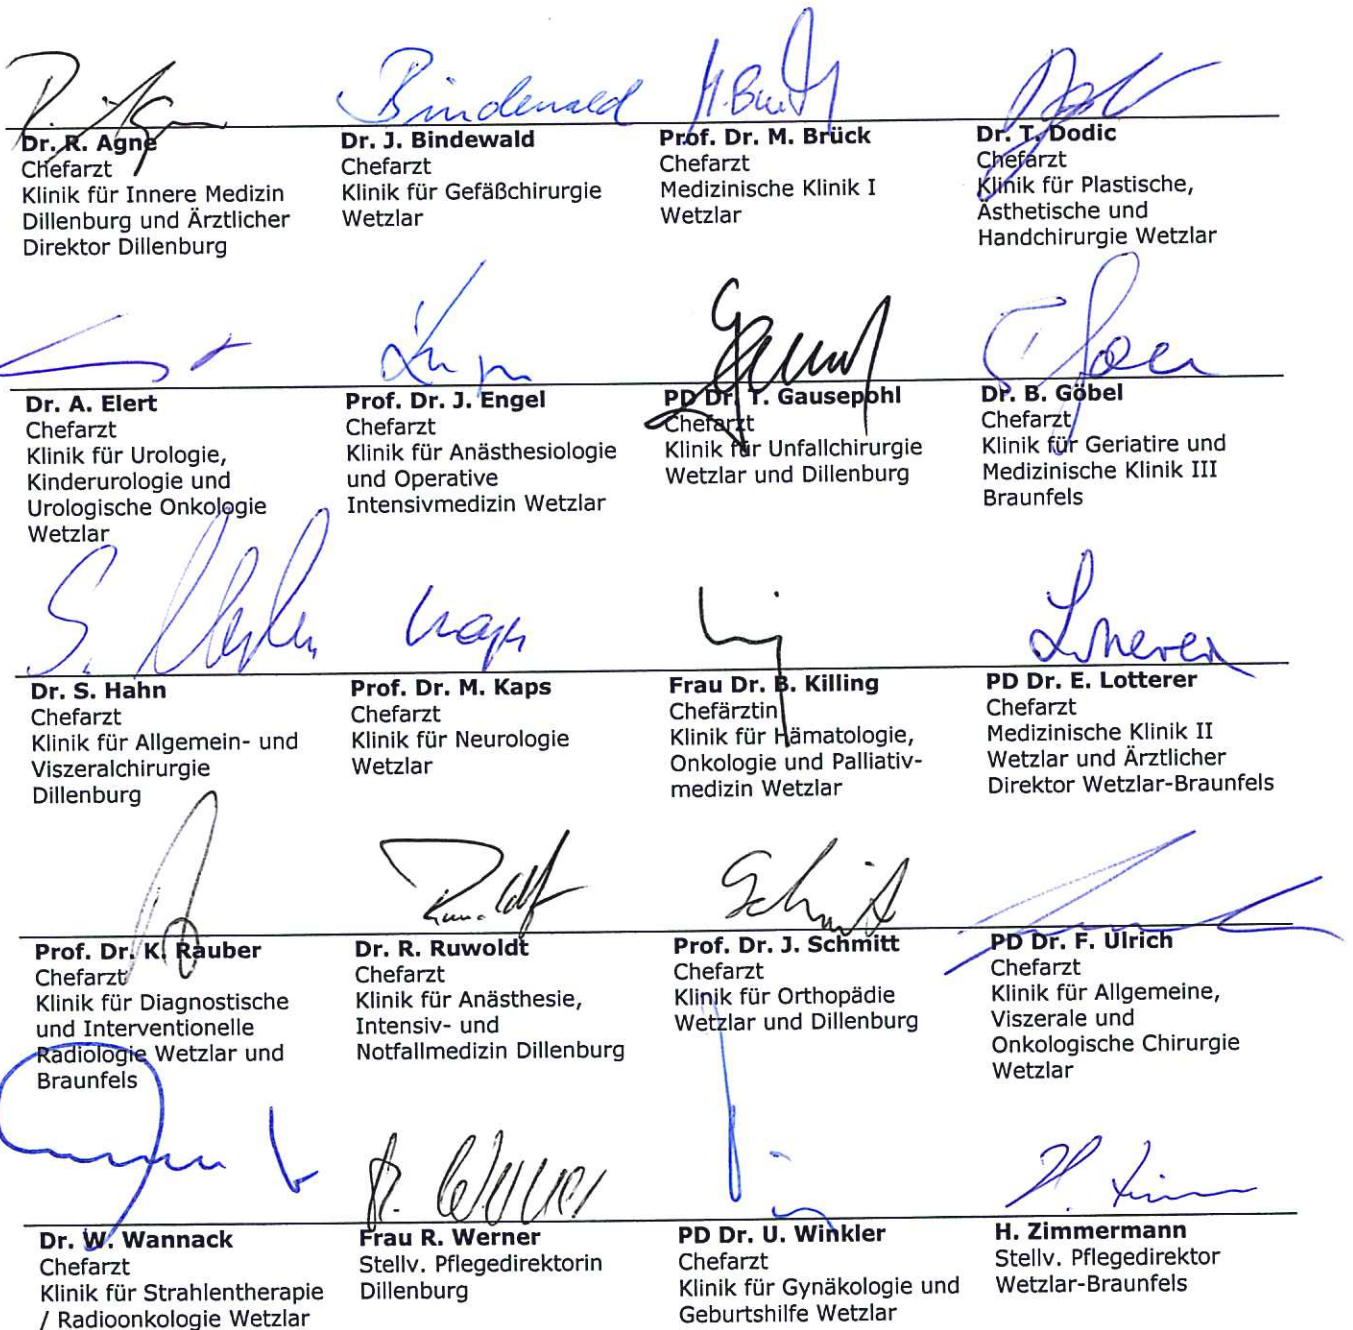 Bindewald
Dr. R. Agne
Chefarzt
Klinik für Innere Medizin
Dillenburg und Ärztlicher
Direktor Dillenburg
Dr. J. Bindewald
Chefarzt
Klinik für Gefäßchirurgie
Wetzlar
Prof. Dr. M. Brück
Chefarzt
Medizinische Klinik I
Wetzlar
Dr. T. Dodic
Chefarzt
Klinik für Plastische,
Ästhetische und
Handchirurgie Wetzlar
Dr. A. Elert
Chefarzt
Klinik für Urologie,
Kinderurologie und
Urologische Onkologie
Wetzlar
Prof. Dr. J. Engel
Chefarzt
Klinik für Anästhesiologie
und Operative
Intensivmedizin Wetzlar
PD Dr. T. Gausepohl
Chefarzt
Klinik für Unfallchirurgie
Wetzlar und Dillenburg
Dr. B. Göbel
Chefarzt
Klinik für Geriatire und
Medizinische Klinik III
Braunfels
Dr. S. Hahn
Chefarzt
Klinik für Allgemein- und
Viszeralchirurgie
Dillenburg
Prof. Dr. M. Kaps
Chefarzt
Klinik für Neurologie
Wetzlar
Frau Dr. B. Killing
Chefärztin
Klinik für Hämatologie,
Onkologie und Palliativ-
medizin Wetzlar
PD Dr. E. Lotterer
Chefarzt
Medizinische Klinik II
Wetzlar und Ärztlicher
Direktor Wetzlar-Braunfels
Prof. Dr. K. Rauber
Chefarzt
Klinik für Diagnostische
und Interventionelle
Radiologie Wetzlar und
Braunfels
Dr. R. Ruwoldt
Chefarzt
Klinik für Anästhesie,
Intensiv- und
Notfallmedizin Dillenburg
Prof. Dr. J. Schmitt
Chefarzt
Klinik für Orthopädie
Wetzlar und Dillenburg
PD Dr. F. Ulrich
Chefarzt
Klinik für Allgemeine,
Viszerale und
Onkologische Chirurgie
Wetzlar
Dr. W. Wannack
Chefarzt
Klinik für Strahlentherapie
/ Radioonkologie Wetzlar
Frau R. Werner
Stellv. Pflegedirektorin
Dillenburg
PD Dr. U. Winkler
Chefarzt
Klinik für Gynäkologie und
Geburtshilfe Wetzlar
H. Zimmermann
Stellv. Pflegedirektor
Wetzlar-Braunfels